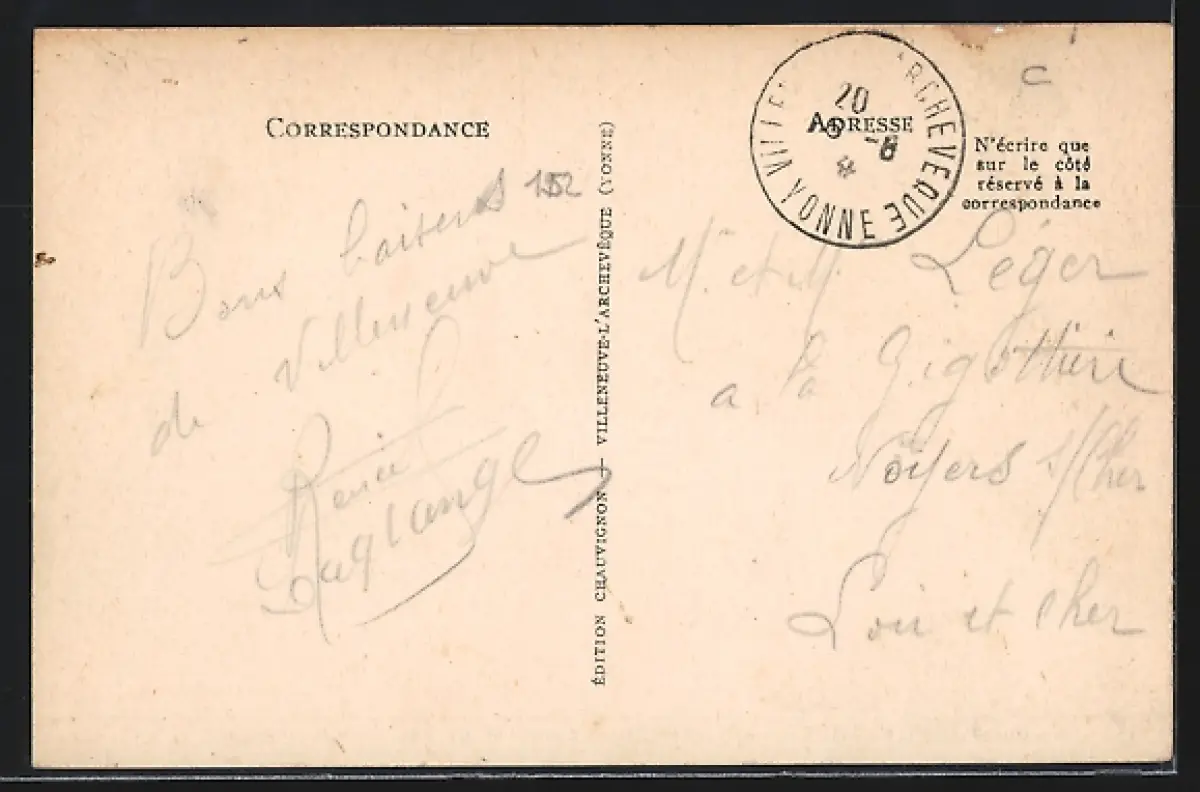 CORRESPONDANCE
Bons baisers
de Villeneuve
Renée
1952
ÉDITION CHAUVIGNON — VILLENEUVE-L'ARCHEVÊQUE (YONNE)
ADRESSE
N'écrire que
sur le côté
réservé à la
correspondance
ARCHEVEQUE
YONNE
20
C
M. et M. Léger
a la Gigottière
Noyers s/Cher
Loir et Cher